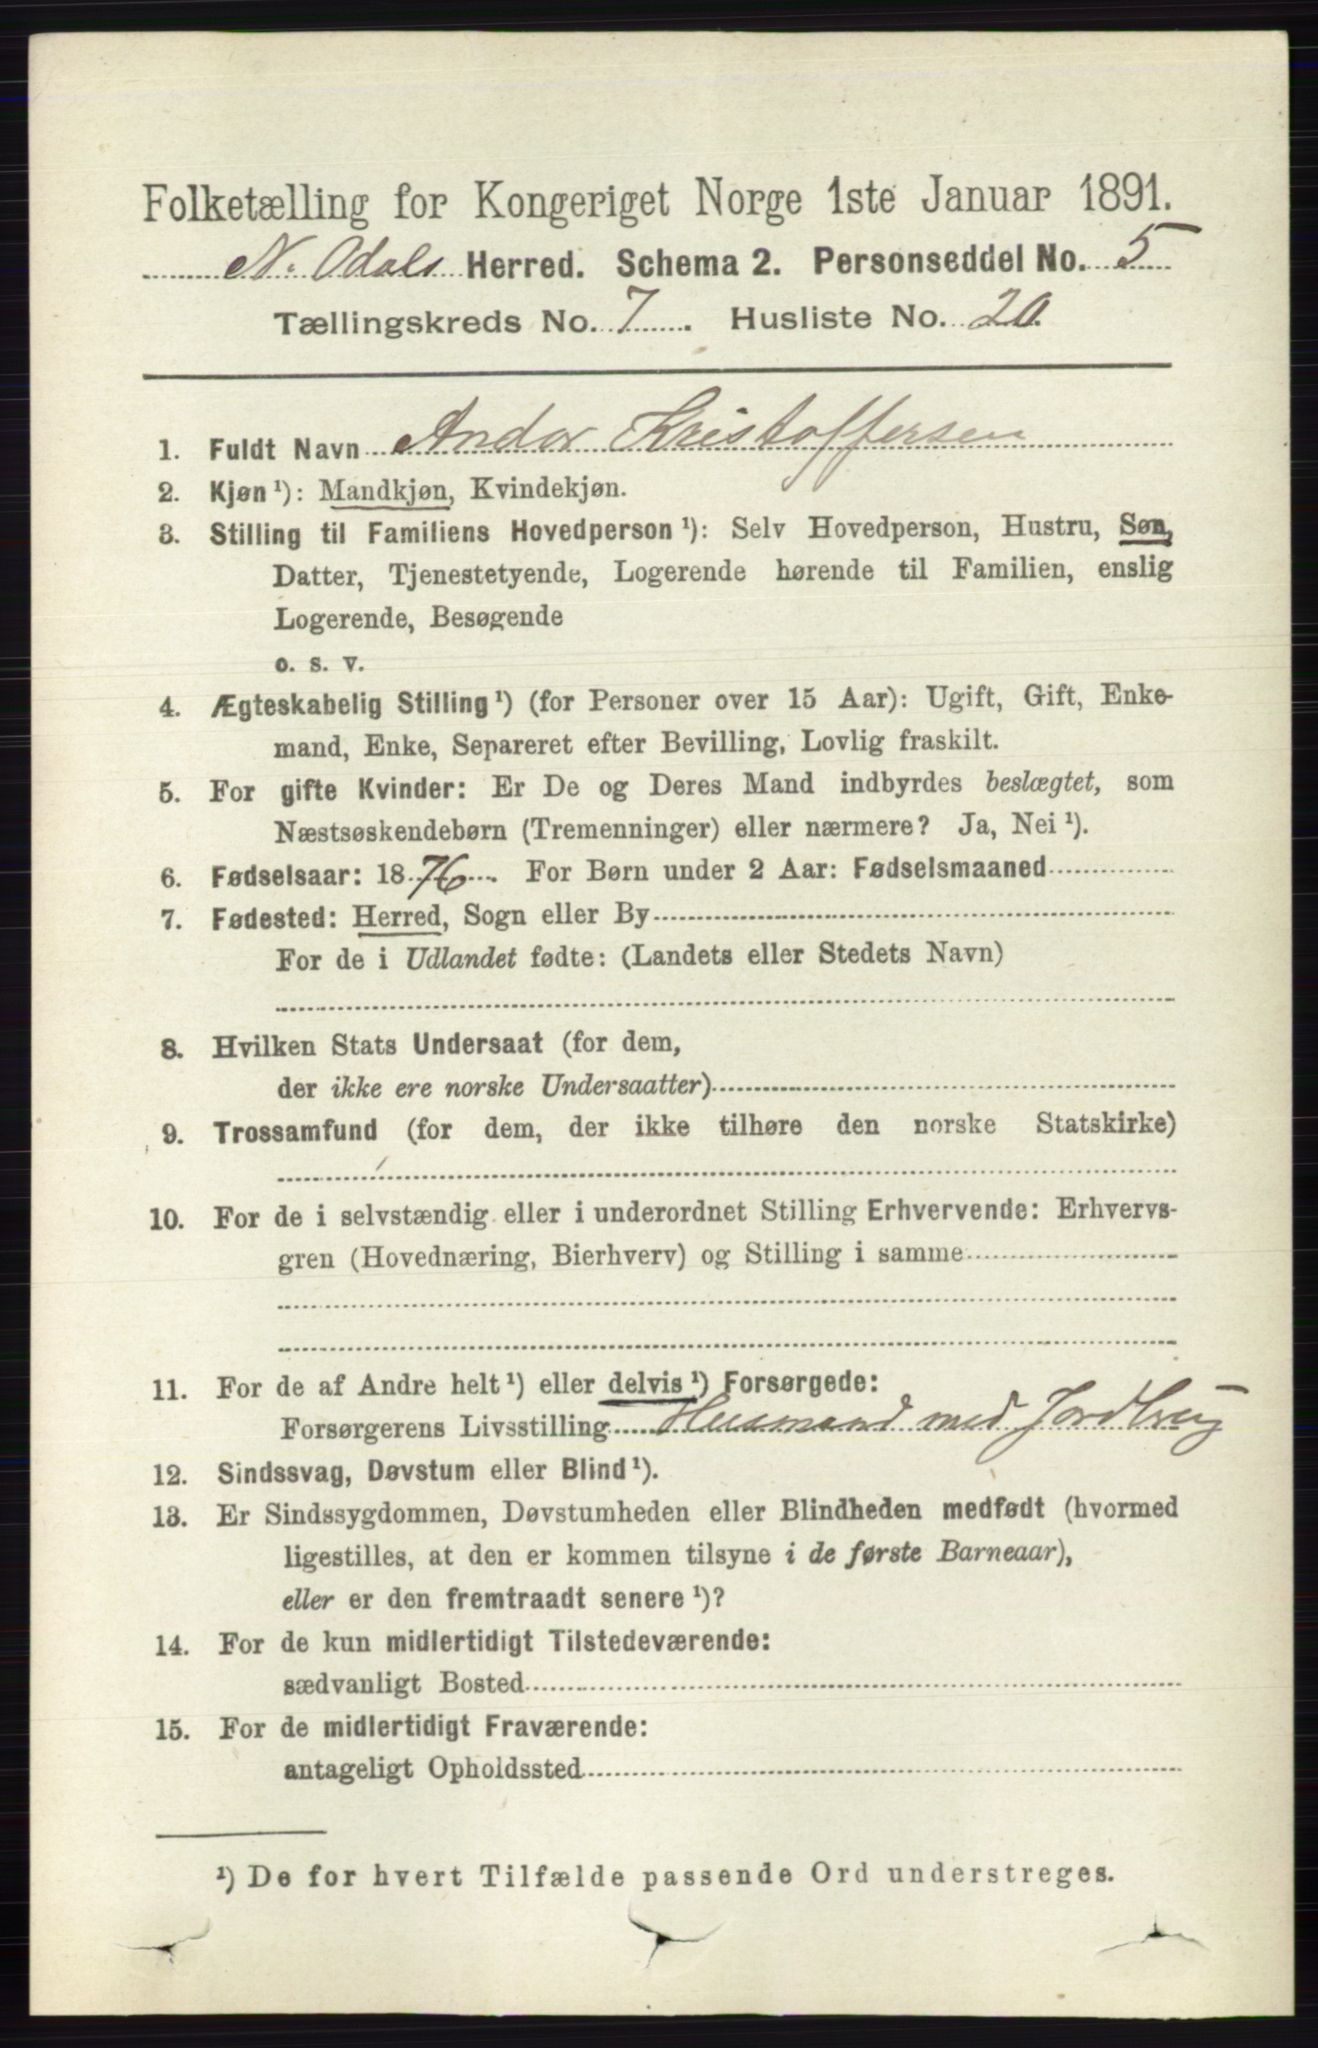 Folketælling for Kongeriget Norge 1ste Januar 1891.
N. Odals Herred. Schema 2. Personseddel No. 5
Tællingskreds No. 7. Husliste No. 20.
1. Fuldt Navn Andor Kristoffersen
2. Kjøn ¹): Mandkjøn, Kvindekjøn.
3. Stilling til Familiens Hovedperson ¹): Selv Hovedperson, Hustru, Søn,
Datter, Tjenestetyende, Logerende hørende til Familien, enslig
Logerende, Besøgende
o. s. v.
4. Ægteskabelig Stilling ¹) (for Personer over 15 Aar): Ugift, Gift, Enke-
mand, Enke, Separeret efter Bevilling, Lovlig fraskilt.
5. For gifte Kvinder: Er De og Deres Mand indbyrdes beslægtet, som
Næstsøskendebørn (Tremenninger) eller nærmere? Ja, Nei ¹).
6. Fødselsaar: 1876. For Børn under 2 Aar: Fødselsmaaned
7. Fødested: Herred, Sogn eller By
For de i Udlandet fødte: (Landets eller Stedets Navn)
8. Hvilken Stats Undersaat (for dem,
der ikke ere norske Undersaatter)
9. Trossamfund (for dem, der ikke tilhøre den norske Statskirke)
10. For de i selvstændig eller i underordnet Stilling Erhvervende: Erhvervs-
gren (Hovednæring, Bierhverv) og Stilling i samme
11. For de af Andre helt ¹) eller delvis ¹) Forsørgede:
Forsørgerens Livsstilling Husmand med Jordbrug
12. Sindssvag, Døvstum eller Blind ¹).
13. Er Sindssygdommen, Døvstumheden eller Blindheden medfødt (hvormed
ligestilles, at den er kommen tilsyne i de første Barneaar),
eller er den fremtraadt senere ¹)?
14. For de kun midlertidigt Tilstedeværende:
sædvanligt Bosted
15. For de midlertidigt Fraværende:
antageligt Opholdssted
¹) De for hvert Tilfælde passende Ord understreges.